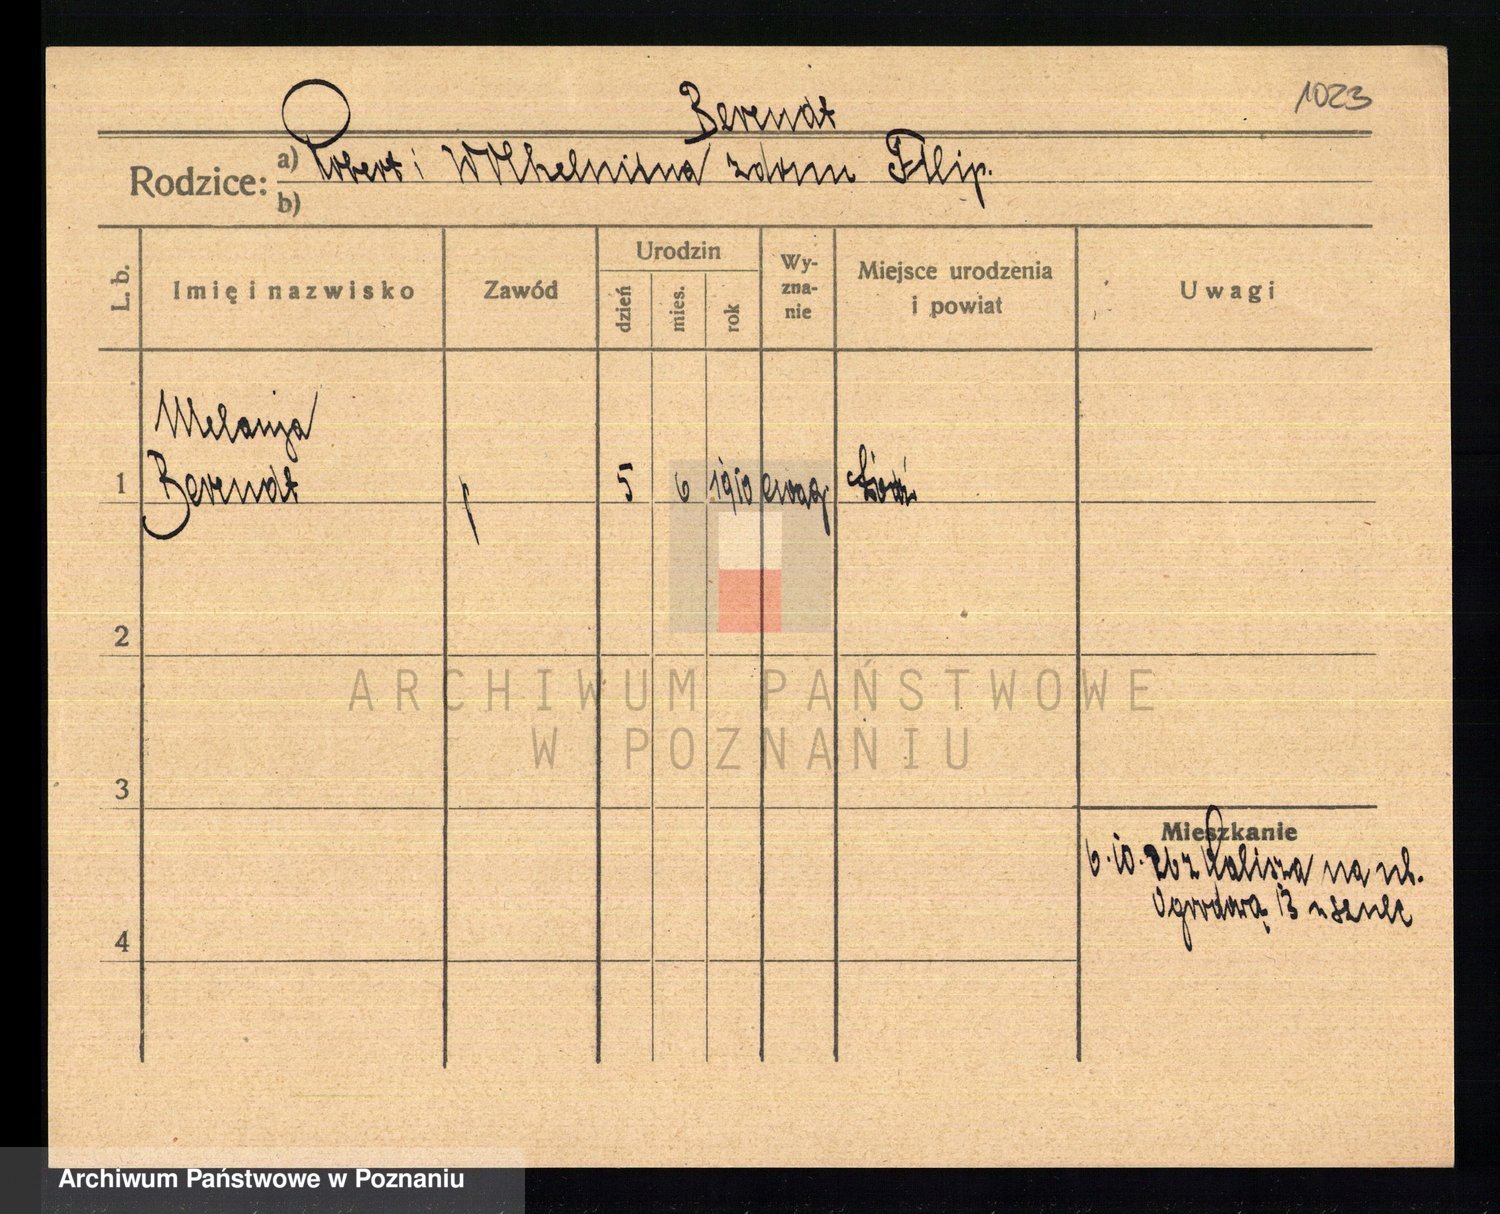 Berendt
1023
Rodzice: a) Robert i Wilhelmina z dom Filip.
b)
L. b.
Imię i nazwisko
Zawód
Urodzin
dzień
mies.
rok
Wy-
zna-
nie
Miejsce urodzenia
i powiat
Uwagi
Melanja
1 Berendt / 5 6 1910 ewag Łódź
2
3
4
ARCHIWUM PAŃSTWOWE
W POZNANIU
Mieszkanie
6.10. 26 z Kalisza na ul.
Ogrodową 13
Archiwum Państwowe w Poznaniu